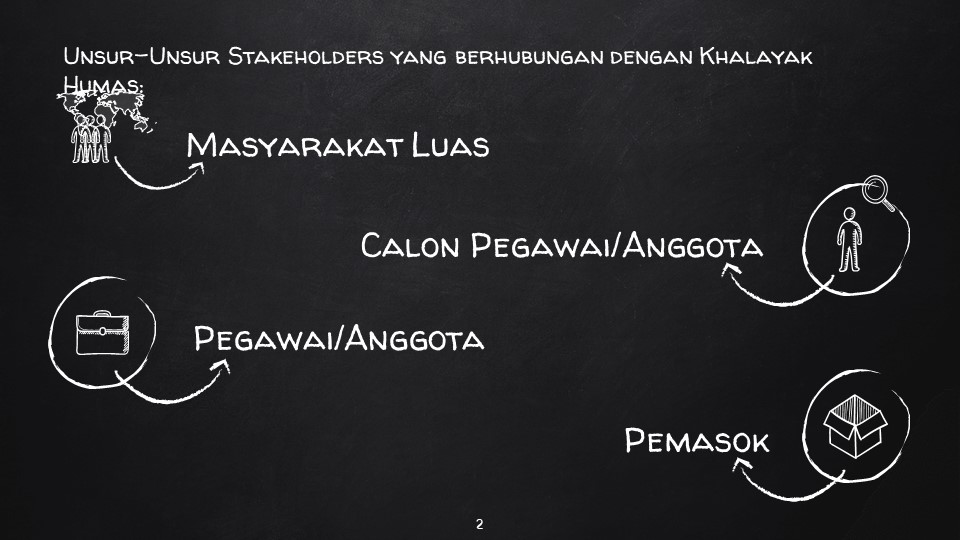 Unsur-Unsur Stakeholders yang berhubungan dengan Khalayak
Humas:
Masyarakat Luas
Calon Pegawai/Anggota
Pegawai/Anggota
Pemasok
2